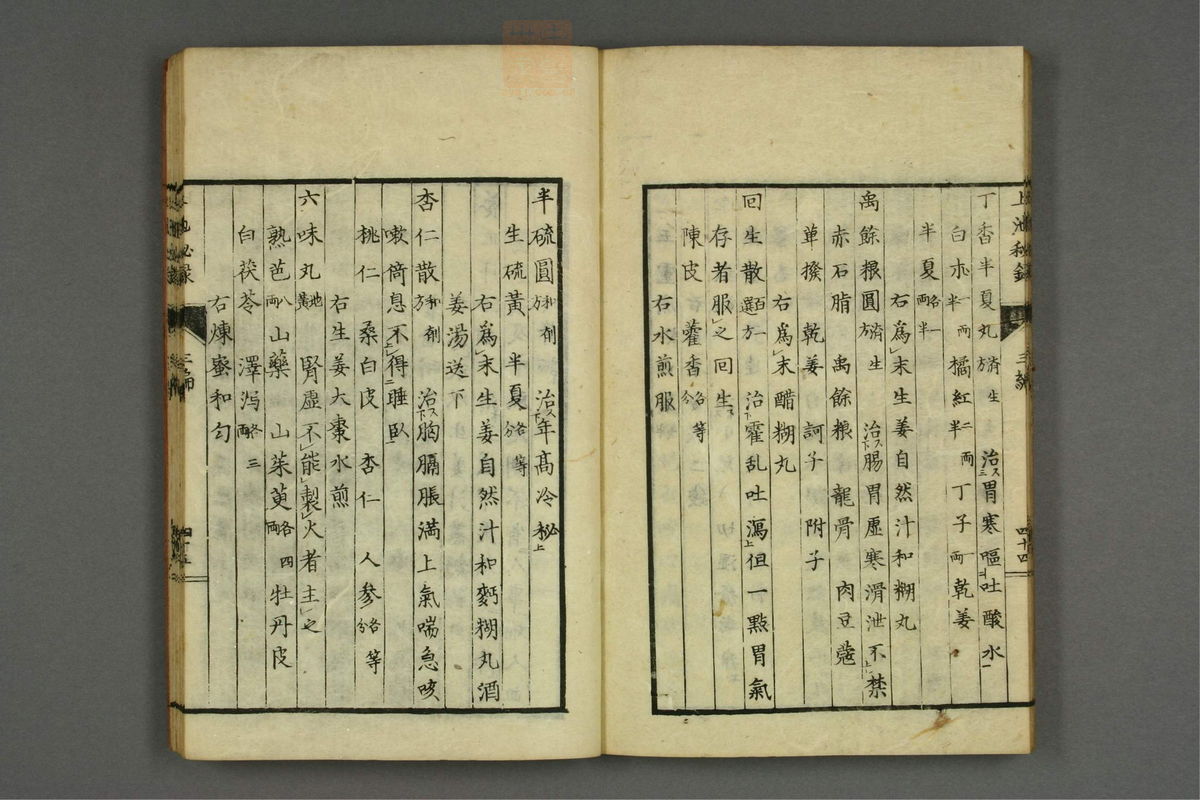 丁香半夏丸 済生方 治胃寒嘔吐酸水
白朮一両半 橘紅二両半 丁子一両 乾姜
半夏各一両半
右為末生姜自然汁和糊丸
禹餘粮圓 済生方 治腸胃虚寒滑泄不禁
赤石脂 禹餘粮 龍骨 肉豆蔲
蓽撥 乾姜 訶子 附子
右為末醋糊丸
回生散 百一選方 治霍乱吐瀉但一點胃氣
存者服之回生
陳皮 藿香各等分
右水煎服
四十四
半硫圓 和剤方 治年髙冷秘
生硫黄 半夏各等分
右為末生姜自然汁和麪糊丸酒
姜湯送下
杏仁散 和剤方 治胸膈脹満上氣喘急咳
嗽倚息不得睡臥
桃仁 桑白皮 杏仁 人参各等分
右生姜大棗水煎
六味丸 地黄 腎虚不能製火者主之
熟芐八両 山藥 山茱萸各四両 牡丹皮
白茯苓 澤泻各三両
右煉蜜和匀